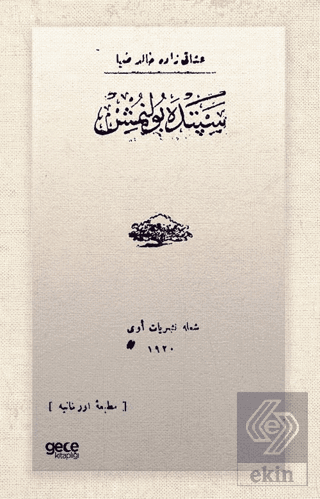 عشاقی زاده خالد ضیا
سپتده بولنمشن
شعله نشریات أوی
١٩٢٠
[ مطبعهٔ اورخانیه ]
gece
kitaplığı
e
ekin